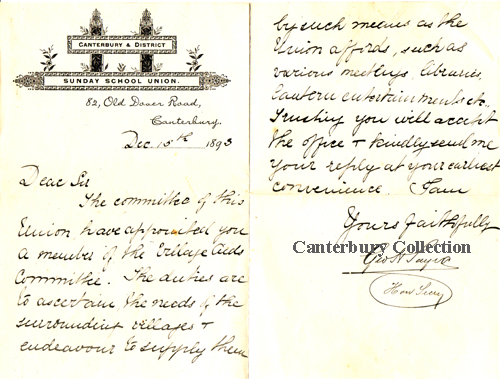 CANTERBURY & DISTRICT
SUNDAY SCHOOL UNION.
82, Old Dover Road,
Canterbury.
Dec 15th 1893
Dear Sir
The committee of this
Union have appointed you
a member of the Village Aids
Committee. The duties are
to ascertain the needs of the
surrounding villages +
endeavour to supply them
by such means as the
Union affords, such as
various meetings, libraries,
lantern entertainments etc.
Trusting you will accept
the office + kindly send me
your reply at your earliest
convenience. I am
Yours faithfully
Canterbury Collection
Geo H
Hon Secy